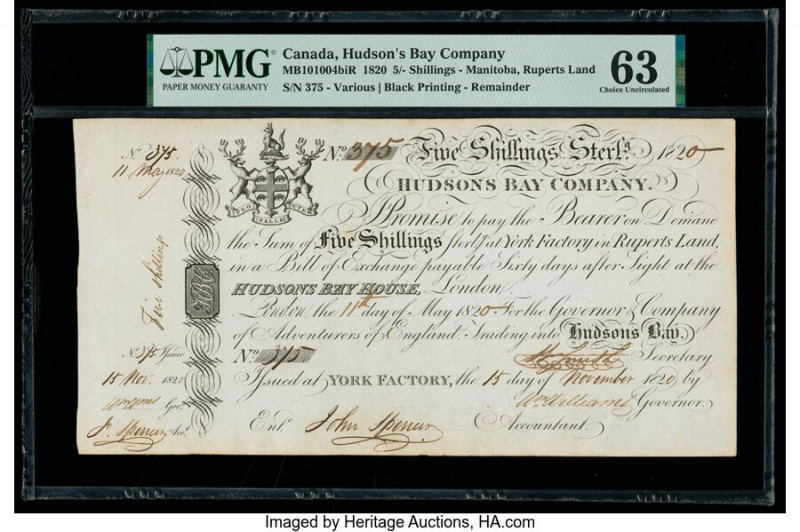 PMG
PAPER MONEY GUARANTY
Canada, Hudson's Bay Company
MB101004biR 1820 5/- Shillings - Manitoba, Ruperts Land
S/N 375 - Various | Black Printing - Remainder
63
Choice Uncirculated
No. 375.
11 May 1820
Five shillings
No. 375 Issued
15 Nov. 1820
Govr.
Jn. Spencer Acct.
HB
PRO PELLE CUTEM
No. 375 Five Shillings Sterlg. 1820
HUDSONS BAY COMPANY.
I Promise to pay the Bearer on Demand
the Sum of Five Shillings Sterlg. at York Factory in Ruperts Land,
in a Bill of Exchange payable Sixty days after Sight at the
HUDSONS BAY HOUSE, London.
London, the 11th day of May 1820. For the Governor & Company
of Adventurers of England, Trading into Hudsons Bay.
No. 375 Secretary
Issued at YORK FACTORY, the 15 day of November 1820 by
Wm Williams Governor.
Entd. John Spencer Accountant.
Imaged by Heritage Auctions, HA.com